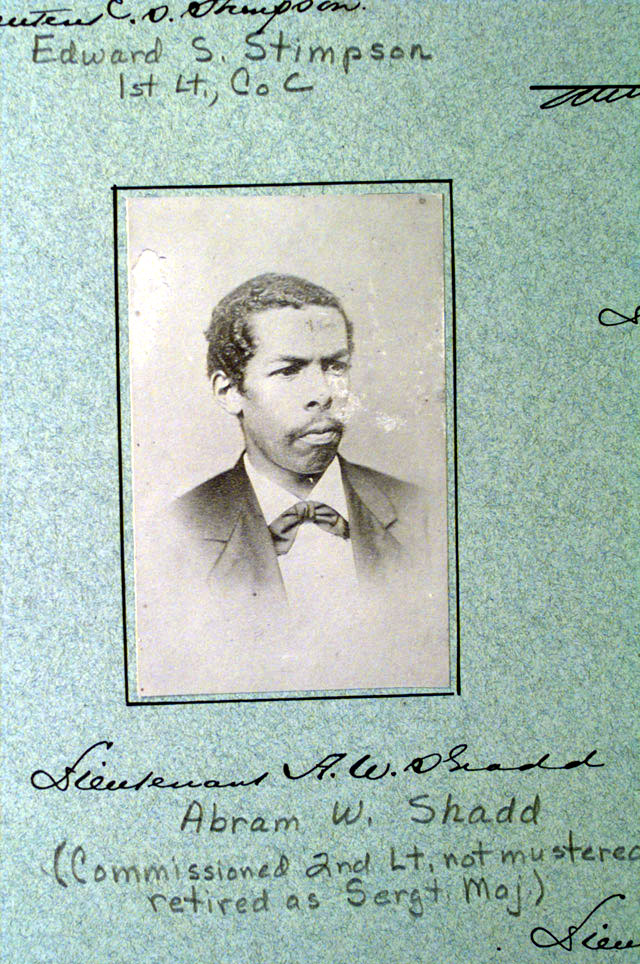 C. S. Stimpson.
Edward S. Stimpson
1st Lt., Co C
Lieutenant A. W. Shadd
Abram W. Shadd
(Commissioned 2nd Lt, not mustered
retired as Sergt. Maj)